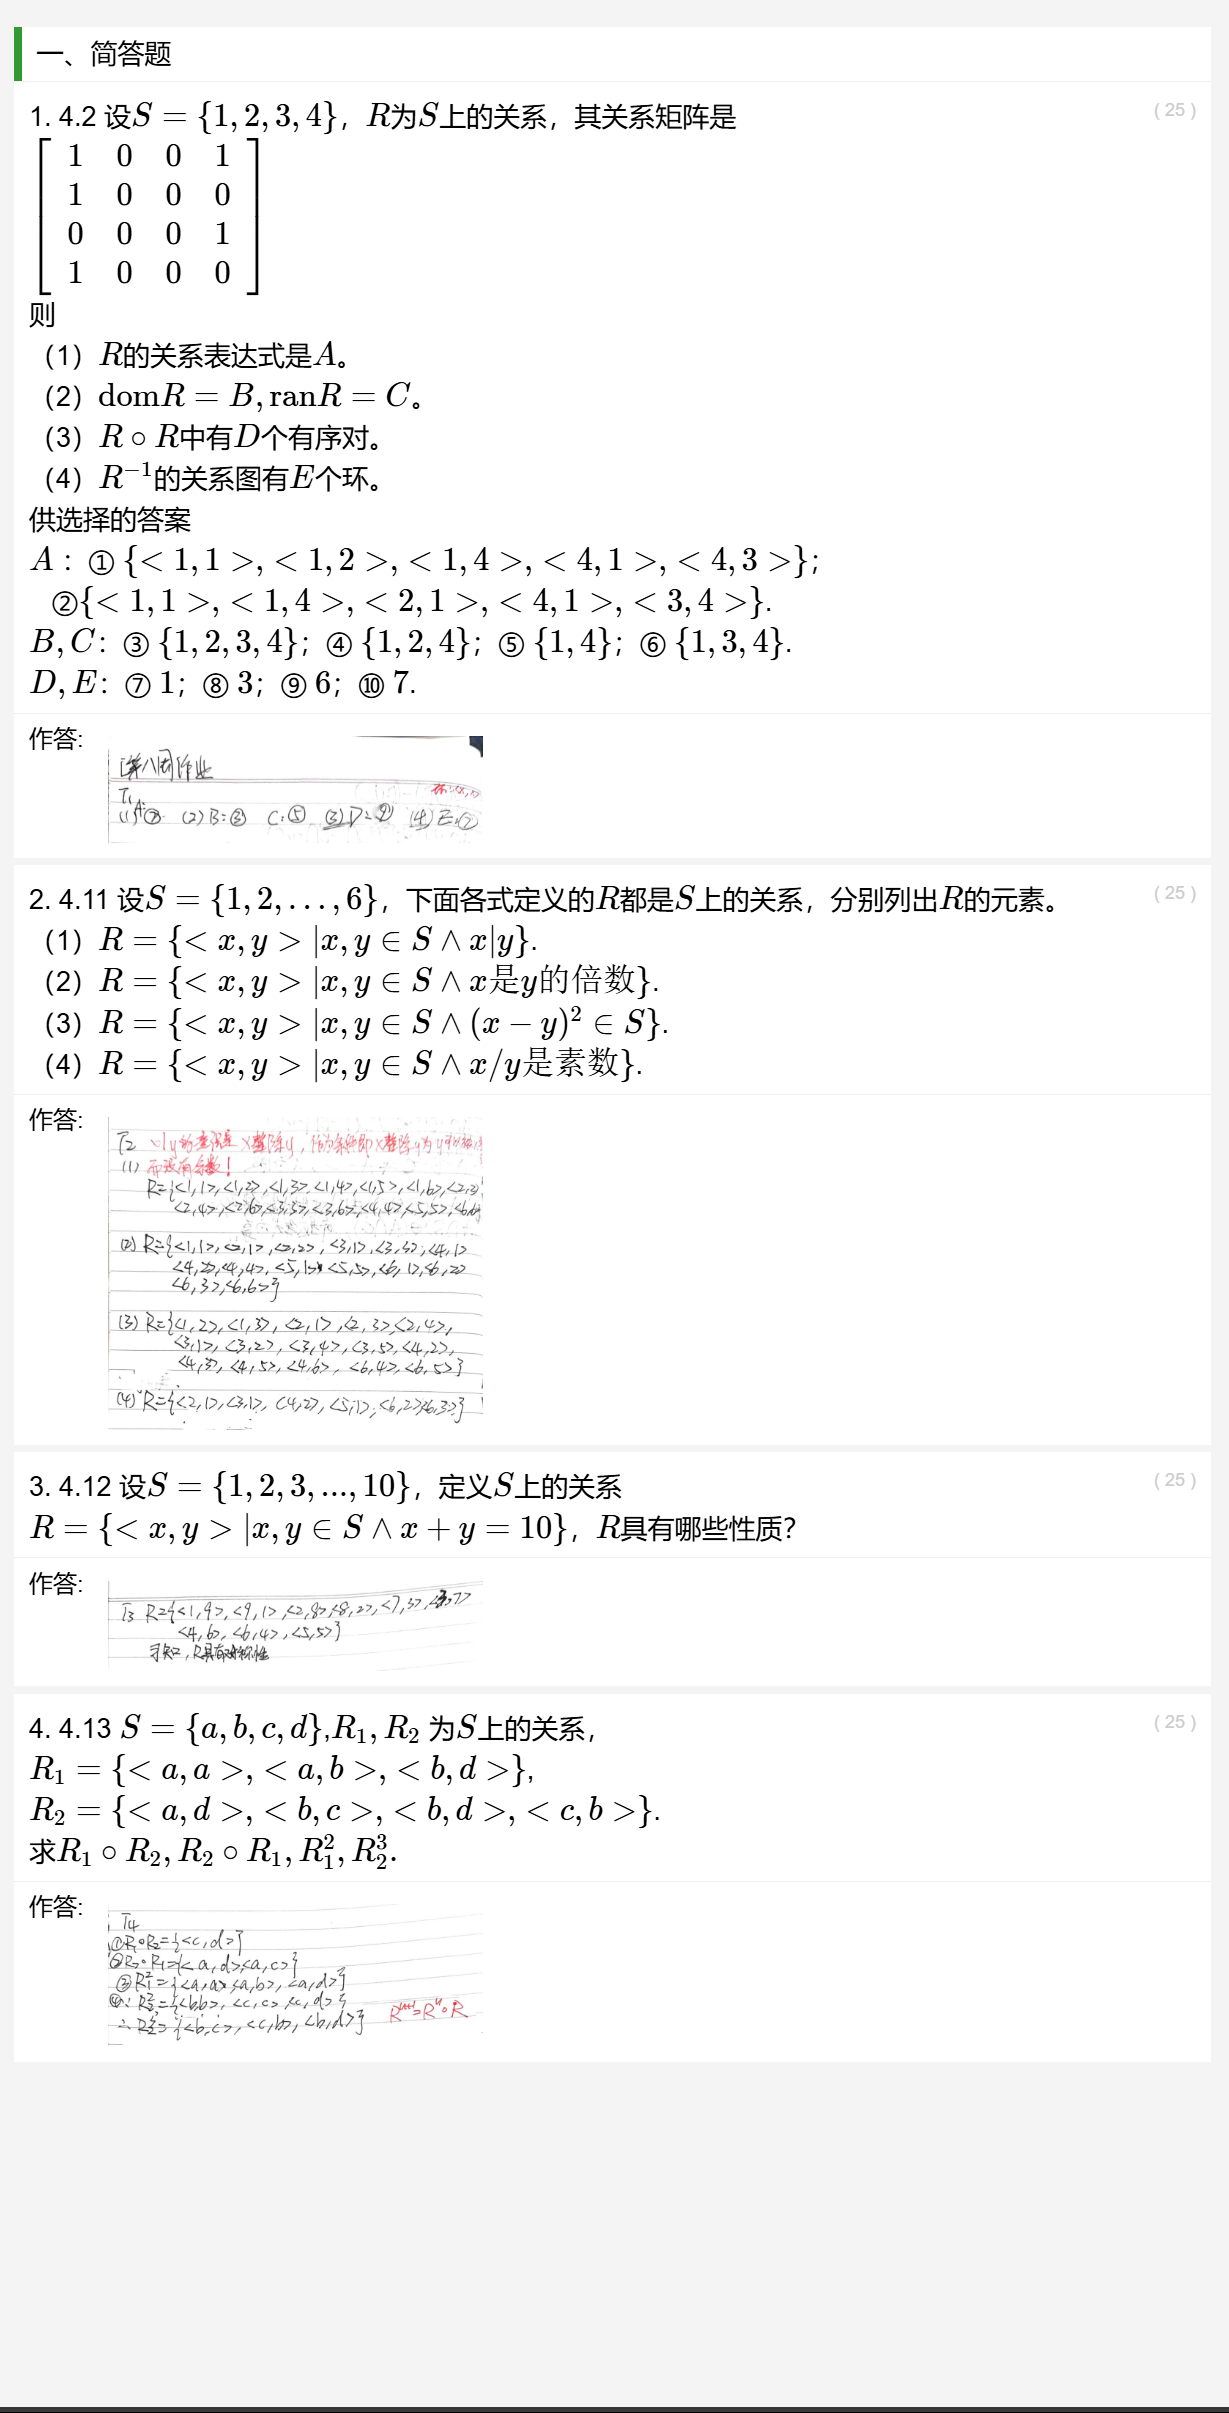 一、简答题
1. 4.2 设S = {1, 2, 3, 4}，R为S上的关系，其关系矩阵是
( 25 )
1 0 0 1
1 0 0 0
0 0 0 1
1 0 0 0
则
（1）R的关系表达式是A。
（2）domR = B, ranR = C。
（3）R ∘ R中有D个有序对。
（4）R⁻¹的关系图有E个环。
供选择的答案
A：① {< 1, 1 >, < 1, 2 >, < 1, 4 >, < 4, 1 >, < 4, 3 >}；
②{< 1, 1 >, < 1, 4 >, < 2, 1 >, < 4, 1 >, < 3, 4 >}.
B, C：③ {1, 2, 3, 4}；④ {1, 2, 4}；⑤ {1, 4}；⑥ {1, 3, 4}.
D, E：⑦ 1；⑧ 3；⑨ 6；⑩ 7.
作答:
第八周作业
T1
(2) B:③ C:⑤
2. 4.11 设S = {1, 2, …, 6}，下面各式定义的R都是S上的关系，分别列出R的元素。
( 25 )
（1）R = {< x, y > |x, y ∈ S ∧ x|y}.
（2）R = {< x, y > |x, y ∈ S ∧ x是y的倍数}.
（3）R = {< x, y > |x, y ∈ S ∧ (x − y)² ∈ S}.
（4）R = {< x, y > |x, y ∈ S ∧ x/y是素数}.
作答:
T2
(1)
R={<1,1>,<1,2>,<1,3>,<1,4>,<1,5>,<1,6>,<2,2>
<2,4>,<2,6>,<3,3>,<3,6>,<4,4>,<5,5>,<6,6>
(2) R={<1,1>,<2,1>,<2,2>,<3,1>,<3,3>,<4,1>
<4,2>,<4,4>,<5,1>,<5,5>,<6,1>,<6,2>
<6,3>,<6,6>}
(3) R={<1,2>,<1,3>,<2,1>,<2,3>,<2,4>,
<3,1>,<3,2>,<3,4>,<3,5>,<4,2>,
<4,3>,<4,5>,<4,6>,<6,4>,<6,5>}
(4) R={<2,1>,<3,1>,<4,2>,<5,1>,<6,2>,<6,3>}
3. 4.12 设S = {1, 2, 3, ..., 10}，定义S上的关系
( 25 )
R = {< x, y > |x, y ∈ S ∧ x + y = 10}，R具有哪些性质?
作答:
T3 R={<1,9>,<9,1>,<2,8>,<8,2>,<7,3>,<3,7>
<4,6>,<6,4>,<5,5>}
可知,R具有对称性
4. 4.13 S = {a, b, c, d},R₁, R₂ 为S上的关系，
( 25 )
R₁ = {< a, a >, < a, b >, < b, d >},
R₂ = {< a, d >, < b, c >, < b, d >, < c, b >}.
求R₁ ∘ R₂, R₂ ∘ R₁, R₁², R₂³.
作答:
T4
①R₁∘R₂={<c,d>}
②R₂∘R₁={<a,d>,<a,c>}
③R₁²={<a,a>,<a,b>,<a,d>}
④∵R₂²={<b,b>,<c,c>,<c,d>}
∴R₂³={<b,c>,<c,b>,<b,d>}
Rⁿ⁺¹=Rⁿ∘R